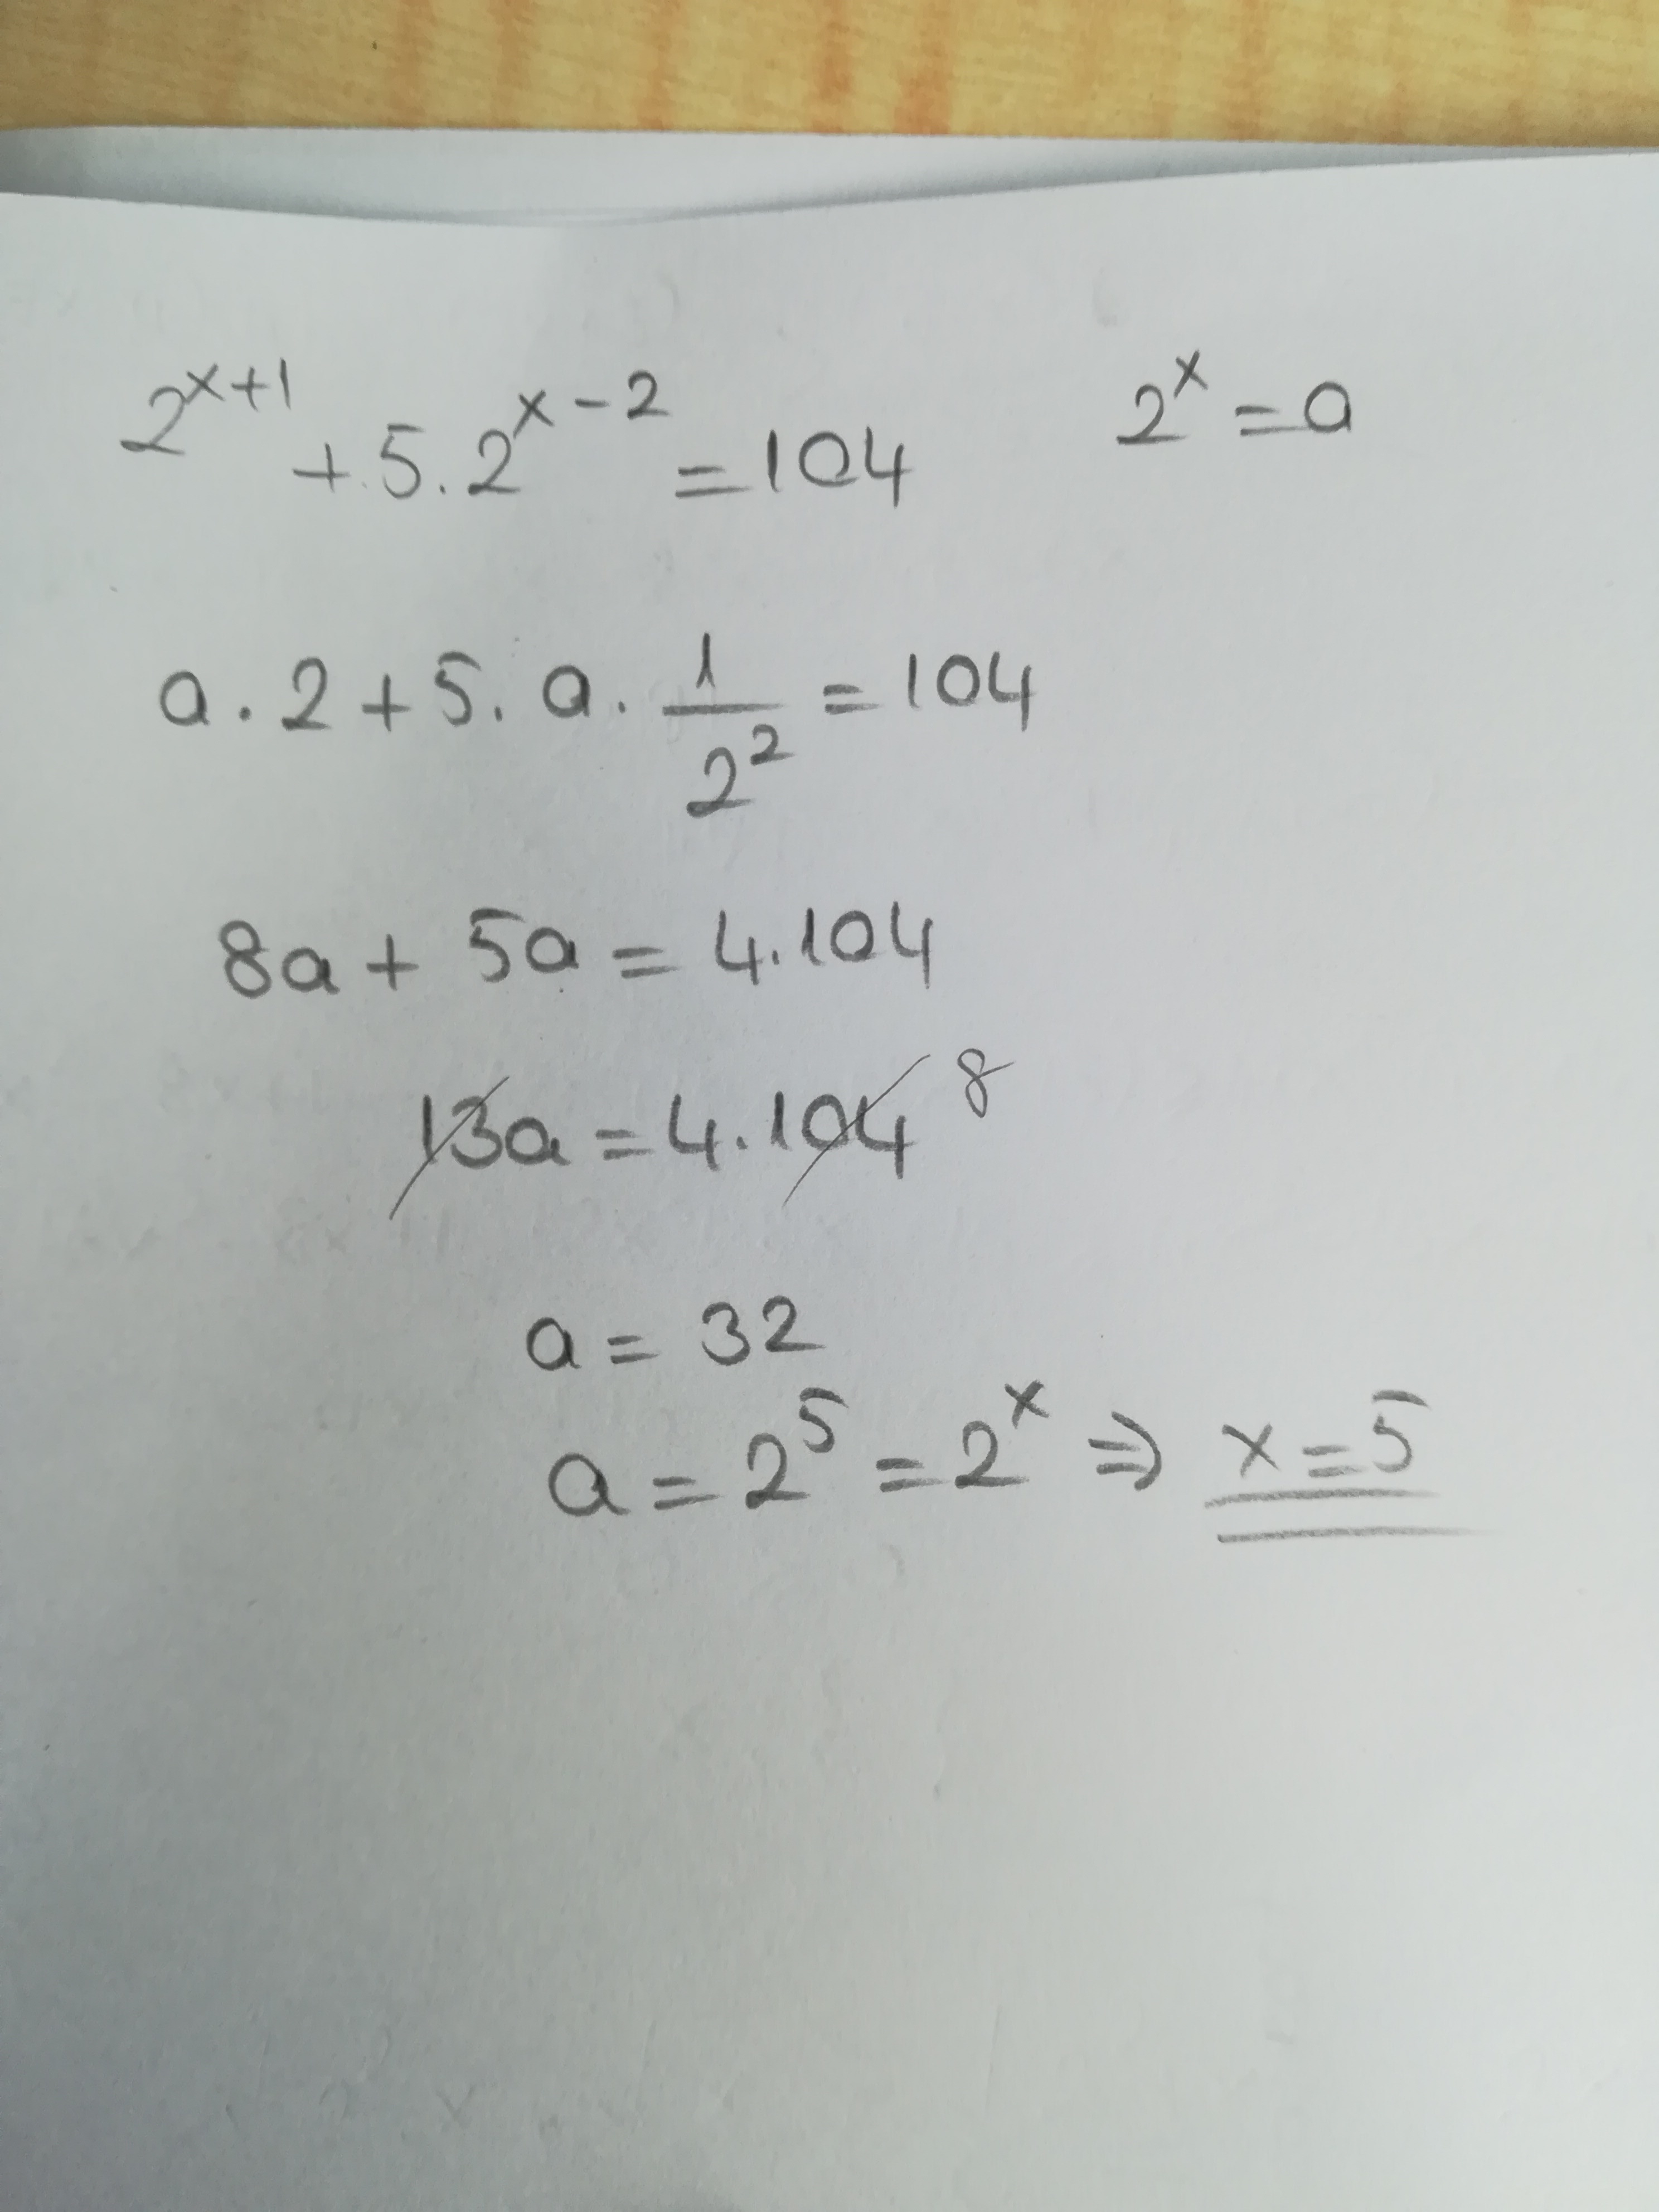 2^{x+1} + 5 . 2^{x-2} = 104    2^x = a
a . 2 + 5 . a . \frac{1}{2^2} = 104
8a + 5a = 4.104
13a = 4.104 8
a = 32
a = 2^5 = 2^x ⇒ x = 5